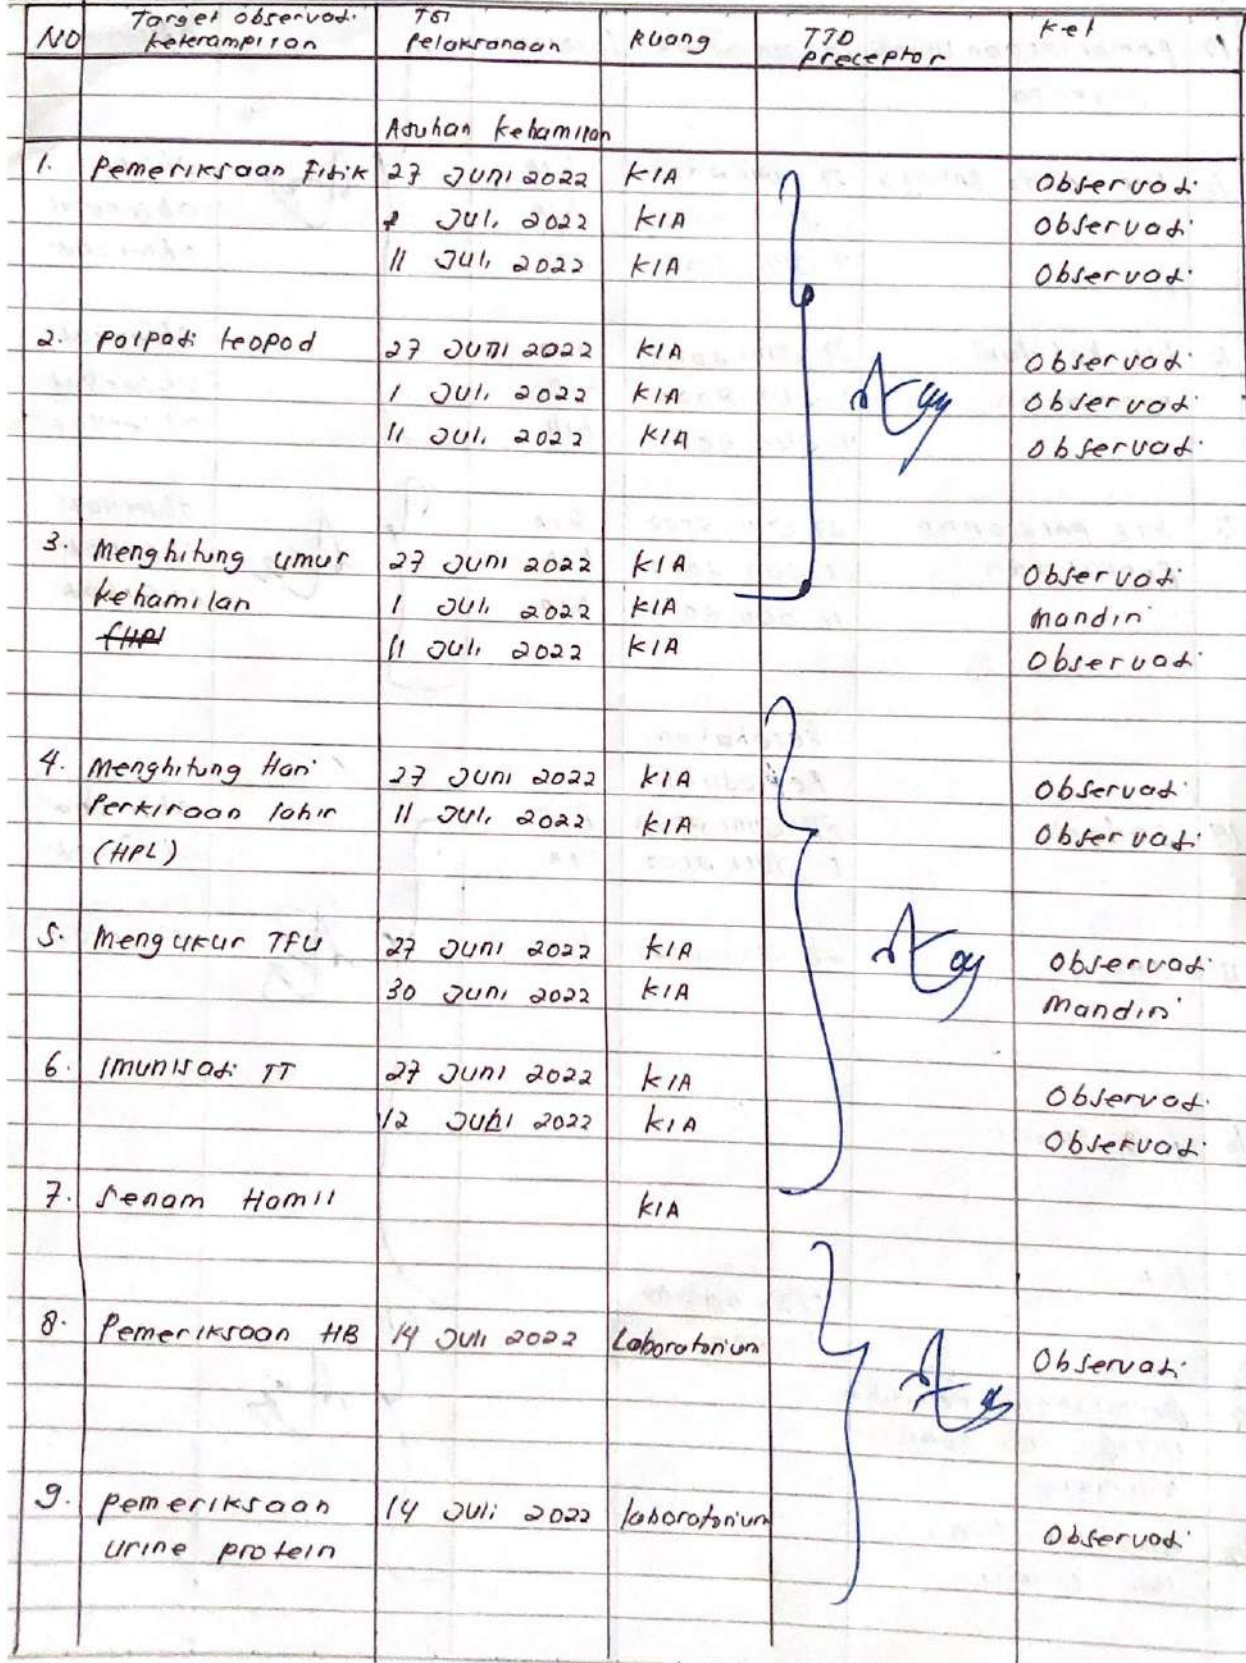 NO Target observasi keterampilan Tgl pelaksanaan Ruang TTD preceptor Ket
Asuhan kehamilan
1. Pemeriksaan Fisik 27 Juni 2022 KIA Observasi
Juli 2022 KIA Observasi
11 Juli 2022 KIA Observasi
2. palpasi leopod 27 Juni 2022 KIA Observasi
1 Juli 2022 KIA Observasi
11 Juli 2022 KIA Observasi
3. Menghitung umur 27 Juni 2022 KIA Observasi
kehamilan 1 Juli 2022 KIA mandiri
(HPl 11 Juli 2022 KIA Observasi
4. Menghitung Hari 27 Juni 2022 KIA Observasi
Perkiraan lahir 11 Juli 2022 KIA Observasi
(HPL)
5. Mengukur TFU 27 Juni 2022 KIA Observasi
30 Juni 2022 KIA Mandiri
6. Imunisasi TT 27 Juni 2022 KIA Observasi
12 2022 KIA Observasi
7. Senam Hamil KIA
8. Pemeriksaan HB 14 Juli 2022 Laboratorium Observasi
9. pemeriksaan 14 Juli 2022 laboratorium Observasi
urine protein